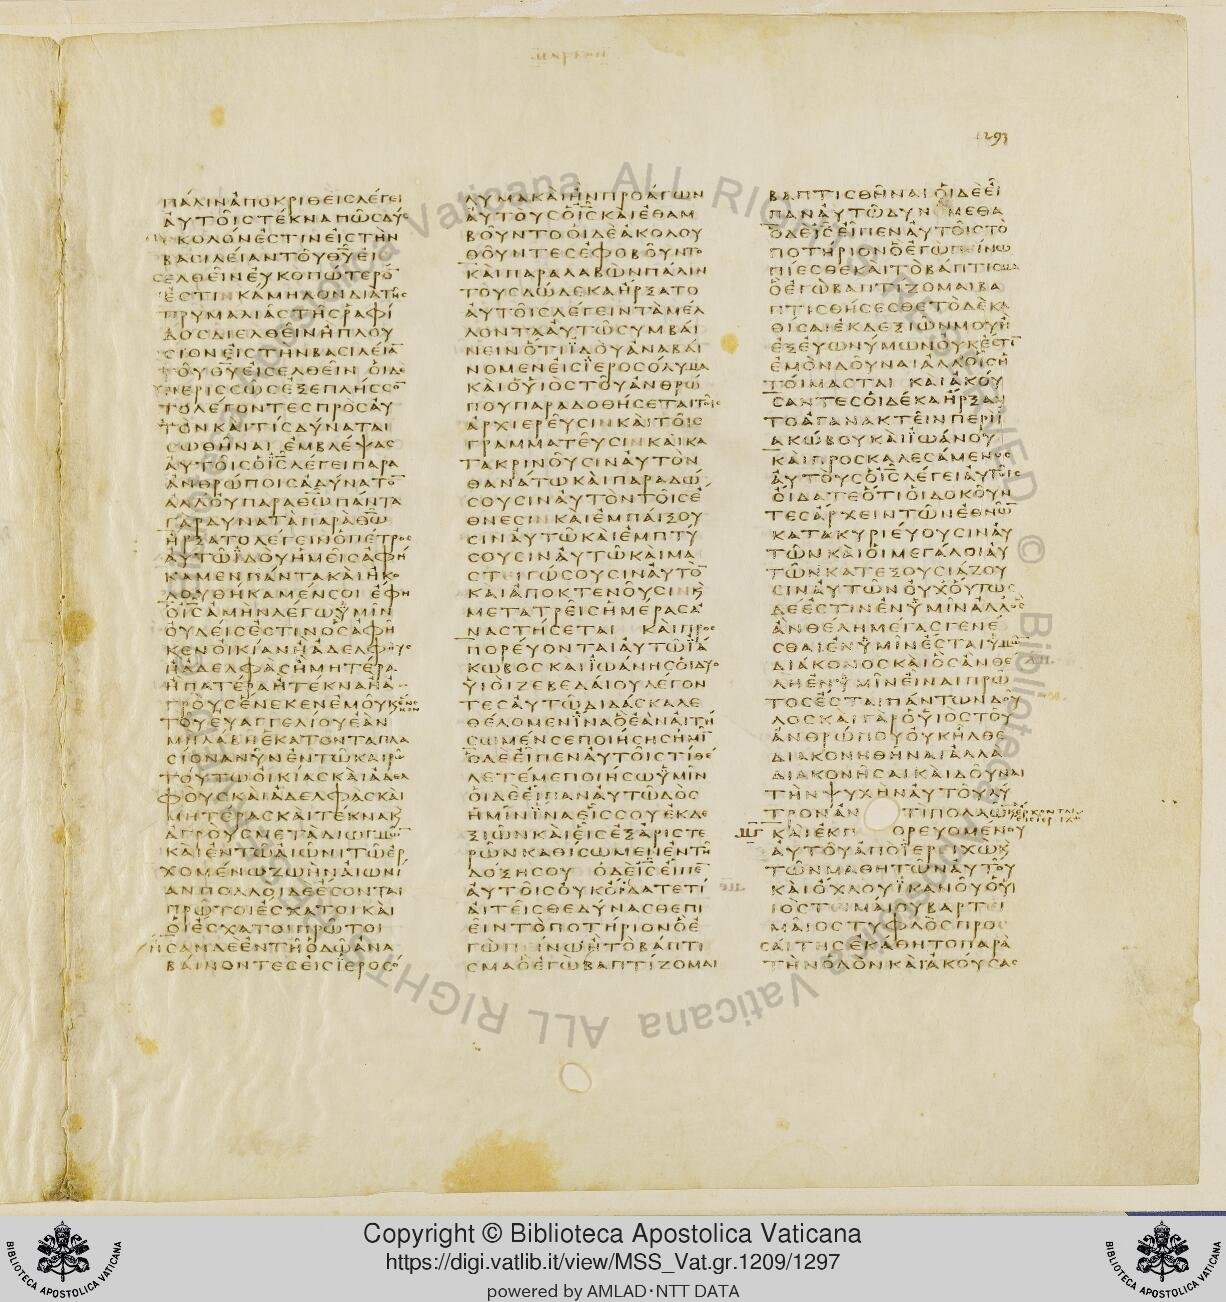 1293
ΠΑΛΙΝΑΠΟΚΡΙΘΕΙΣΛΕΓΕΙ
ΑΥΤΟΙΣΤΕΚΝΑΠΩΣΔΥΣ
ΚΟΛΟΝΕΣΤΙΝΕΙΣΤΗΝ
ΒΑΣΙΛΕΙΑΝΤΟΥΘΥΕΙ
ΣΕΛΘΕΙΝΕΥΚΟΠΩΤΕΡΟ̄
ΕΣΤΙΝΚΑΜΗΛΟΝΔΙΑΤΗΣ
ΤΡΥΜΑΛΙΑΣΤΗΣΡΑΦΙ
ΔΟΣΔΙΕΛΘΕΙΝΗΠΛΟΥ
ΣΙΟΝΕΙΣΤΗΝΒΑΣΙΛΕΙᾹ
ΤΟΥΘΥΕΙΣΕΛΘΕΙΝ ΟΙΔΕ
ΠΕΡΙΣΣΩΣΕΞΕΠΛΗΣΣΟ̄
ΤΟΛΕΓΟΝΤΕΣΠΡΟΣΑΥ
ΤΟΝΚΑΙΤΙΣΔΥΝΑΤΑΙ
ΣΩΘΗΝΑΙ ΕΜΒΛΕΨΑΣ
ΑΥΤΟΙΣΟΙΣΛΕΓΕΙΠΑΡΑ
ΑΝΘΡΩΠΟΙΣΑΔΥΝΑΤΟ̄
ΑΛΛΟΥΠΑΡΑΘΩΠΑΝΤΑ
ΓΑΡΔΥΝΑΤΑΠΑΡΑΘΩ
ΗΡΞΑΤΟΛΕΓΕΙΝΟΠΕΤΡΟΣ
ΑΥΤΩΙΔΟΥΗΜΕΙΣΑΦΗ
ΚΑΜΕΝΠΑΝΤΑΚΑΙΗΚΟ
ΛΟΥΘΗΚΑΜΕΝΣΟΙ ΕΦΗ
ΟΙΣΑΜΗΝΛΕΓΩΥΜΙΝ
ΟΥΔΕΙΣΕΣΤΙΝΟΣΑΦΗ
ΚΕΝΟΙΚΙΑΝΗΑΔΕΛΦΟΥΣ
ΗΑΔΕΛΦΑΣΗΜΗΤΕΡΑ
ΗΠΑΤΕΡΑΗΤΕΚΝΑΗΑ
ΓΡΟΥΣΕΝΕΚΕΝΕΜΟΥΚΕΝΕ
ΚΕΝ
ΤΟΥΕΥΑΓΓΕΛΙΟΥΕΑΝ
ΜΗΛΑΒΗΕΚΑΤΟΝΤΑΠΛΑ
ΣΙΟΝΑΝΥΝΕΝΤΩΚΑΙΡΩ
ΤΟΥΤΩΟΙΚΙΑΣΚΑΙΑΔΕΛ
ΦΟΥΣΚΑΙΑΔΕΛΦΑΣΚΑΙ
ΜΗΤΕΡΑΣΚΑΙΤΕΚΝΑΚ
ΑΓΡΟΥΣΜΕΤΑΔΙΩΓΜΩ
ΚΑΙΕΝΤΩΑΙΩΝΙΤΩΕΡ
ΧΟΜΕΝΩΖΩΗΝΑΙΩΝΙ
ΑΝΠΟΛΛΟΙΔΕΕΣΟΝΤΑΙ
ΠΡΩΤΟΙΕΣΧΑΤΟΙΚΑΙ
ΟΙΕΣΧΑΤΟΙΠΡΩΤΟΙ
ΗΣΑΝΔΕΕΝΤΗΟΔΩΑΝΑ
ΒΑΙΝΟΝΤΕΣΕΙΣΙΕΡΟΣΟ
ΛΥΜΑΚΑΙΗΝΠΡΟΑΓΩΝ
ΑΥΤΟΥΣΟΙΣΚΑΙΕΘΑΜ
ΒΟΥΝΤΟΟΙΔΕΑΚΟΛΟΥ
ΘΟΥΝΤΕΣΕΦΟΒΟΥΝΤΟ
ΚΑΙΠΑΡΑΛΑΒΩΝΠΑΛΙΝ
ΤΟΥΣΔΩΔΕΚΑΗΡΞΑΤΟ
ΑΥΤΟΙΣΛΕΓΕΙΝΤΑΜΕΛ
ΛΟΝΤΑΑΥΤΩΣΥΜΒΑΙ
ΝΕΙΝΟΤΙΙΔΟΥΑΝΑΒΑΙ
ΝΟΜΕΝΕΙΣΙΕΡΟΣΟΛΥΜΑ
ΚΑΙΟΥΙΟΣΤΟΥΑΝΘΡΩ
ΠΟΥΠΑΡΑΔΟΘΗΣΕΤΑΙΤΟΙΣ
ΑΡΧΙΕΡΕΥΣΙΝΚΑΙΤΟΙΣ
ΓΡΑΜΜΑΤΕΥΣΙΝΚΑΙΚΑ
ΤΑΚΡΙΝΟΥΣΙΝΑΥΤΟΝ
ΘΑΝΑΤΩΚΑΙΠΑΡΑΔΩ
ΣΟΥΣΙΝΑΥΤΟΝΤΟΙΣΕ
ΘΝΕΣΙΝΚΑΙΕΜΠΑΙΞΟΥ
ΣΙΝΑΥΤΩΚΑΙΕΜΠΤΥ
ΣΟΥΣΙΝΑΥΤΩΚΑΙΜΑ
ΣΤΕΙΓΩΣΟΥΣΙΝΑΥΤΟ̄
ΚΑΙΑΠΟΚΤΕΝΟΥΣΙΝΚ
ΜΕΤΑΤΡΕΙΣΗΜΕΡΑΣΑ
ΝΑΣΤΗΣΕΤΑΙ ΚΑΙΠΡΟΣ
ΠΟΡΕΥΟΝΤΑΙΑΥΤΩΙΑ
ΚΩΒΟΣΚΑΙΙΩΑΝΗΣΟΙΔΥΟ
ΥΙΟΙΖΕΒΕΔΑΙΟΥΛΕΓΟΝ
ΤΕΣΑΥΤΩΔΙΔΑΣΚΑΛΕ
ΘΕΛΟΜΕΝΙΝΑΟΕΑΝΑΙΤΗ
ΣΩΜΕΝΣΕΠΟΙΗΣΗΣΗΜῙ
ΟΔΕΕΙΠΕΝΑΥΤΟΙΣΤΙΘΕ
ΛΕΤΕΜΕΠΟΙΗΣΩΥΜΙΝ
ΟΙΔΕΕΙΠΑΝΑΥΤΩΔΟΣ
ΗΜΙΝΙΝΑΕΙΣΣΟΥΕΚΔΕ
ΞΙΩΝΚΑΙΕΙΣΕΞΑΡΙΣΤΕ
ΡΩΝΚΑΘΙΣΩΜΕΝΕΝΤΗ
ΔΟΞΗΣΟΥ ΟΔΕΙΣΕΙΠΕ
ΑΥΤΟΙΣΟΥΚΟΙΔΑΤΕΤΙ
ΑΙΤΕΙΣΘΕΔΥΝΑΣΘΕΠΙ
ΕΙΝΤΟΠΟΤΗΡΙΟΝΟΕ
ΓΩΠΕΙΝΩΗΤΟΒΑΠΤΙ
ΣΜΑΟΕΓΩΒΑΠΤΙΖΟΜΑΙ
ΒΑΠΤΙΣΘΗΝΑΙ ΟΙΔΕΕΙ
ΠΑΝΑΥΤΩΔΥΝΑΜΕΘΑ
ΟΔΕΙΣΕΙΠΕΝΑΥΤΟΙΣΤΟ
ΠΟΤΗΡΙΟΝΟΕΓΩΠΕΙΝΩ
ΠΙΕΣΘΕΚΑΙΤΟΒΑΠΤΙΣΜΑ
ΟΕΓΩΒΑΠΤΙΖΟΜΑΙΒΑ
ΠΤΙΣΘΗΣΕΣΘΕΤΟΔΕΚΑ
ΘΙΣΑΙΕΚΔΕΞΙΩΝΜΟΥΗ
ΕΞΕΥΩΝΥΜΩΝΟΥΚΕΣΤΙ
ΕΜΟΝΔΟΥΝΑΙΑΛΛΟΙΣΗ
ΤΟΙΜΑΣΤΑΙ ΚΑΙΑΚΟΥ
ΣΑΝΤΕΣΟΙΔΕΚΑΗΡΞΑΝ
ΤΟΑΓΑΝΑΚΤΕΙΝΠΕΡΙΙ
ΑΚΩΒΟΥΚΑΙΙΩΑΝΟΥ
ΚΑΙΠΡΟΣΚΑΛΕΣΑΜΕΝΟΣ
ΑΥΤΟΥΣΟΙΣΛΕΓΕΙΑΥΤΟΙΣ
ΟΙΔΑΤΕΟΤΙΟΙΔΟΚΟΥΝ
ΤΕΣΑΡΧΕΙΝΤΩΝΕΘΝΩ
ΚΑΤΑΚΥΡΙΕΥΟΥΣΙΝΑΥ
ΤΩΝΚΑΙΟΙΜΕΓΑΛΟΙΑΥ
ΤΩΝΚΑΤΕΞΟΥΣΙΑΖΟΥ
ΣΙΝΑΥΤΩΝΟΥΧΟΥΤΩΣ
ΔΕΕΣΤΙΝΕΝΥΜΙΝΑΛΛΟΣ
ΑΝΘΕΛΗΜΕΓΑΣΓΕΝΕ
ΣΘΑΙΕΝΥΜΙΝΕΣΤΑΙΥΜΩ
ΔΙΑΚΟΝΟΣΚΑΙΟΣΑΝΘΕ
ΛΗΕΝΥΜΙΝΕΙΝΑΙΠΡΩ
ΤΟΣΕΣΤΑΙΠΑΝΤΩΝΔΟΥ
ΛΟΣΚΑΙΓΑΡΟΥΙΟΣΤΟΥ
ΑΝΘΡΩΠΟΥΟΥΚΗΛΘΕ
ΔΙΑΚΟΝΗΘΗΝΑΙΑΛΛΑ
ΔΙΑΚΟΝΗΣΑΙΚΑΙΔΟΥΝΑΙ
ΤΗΝΨΥΧΗΝΑΥΤΟΥΛΥ
ΤΡΟΝΑΝ ΤΙΠΟΛΛΩ
ΚΑΙΕΚΠ ΟΡΕΥΟΜΕΝΟΥ
ΑΥΤΟΥΑΠΟΙΕΡΕΙΧΩΚ
ΤΩΝΜΑΘΗΤΩΝΑΥΤΟΥ
ΚΑΙΟΧΛΟΥΙΚΑΝΟΥΟΥΙ
ΙΟΣΤΕΙΜΑΙΟΥΒΑΡΤΕΙ
ΜΑΙΟΣΤΥΦΛΟΣΠΡΟΣ
ΑΙΤΗΣΕΚΑΘΗΤΟΠΑΡΑ
ΤΗΝΟΔΟΝΚΑΙΑΚΟΥΣΑΣ
Copyright © Biblioteca Apostolica Vaticana
https://digi.vatlib.it/view/MSS_Vat.gr.1209/1297
powered by AMLAD·NTT DATA